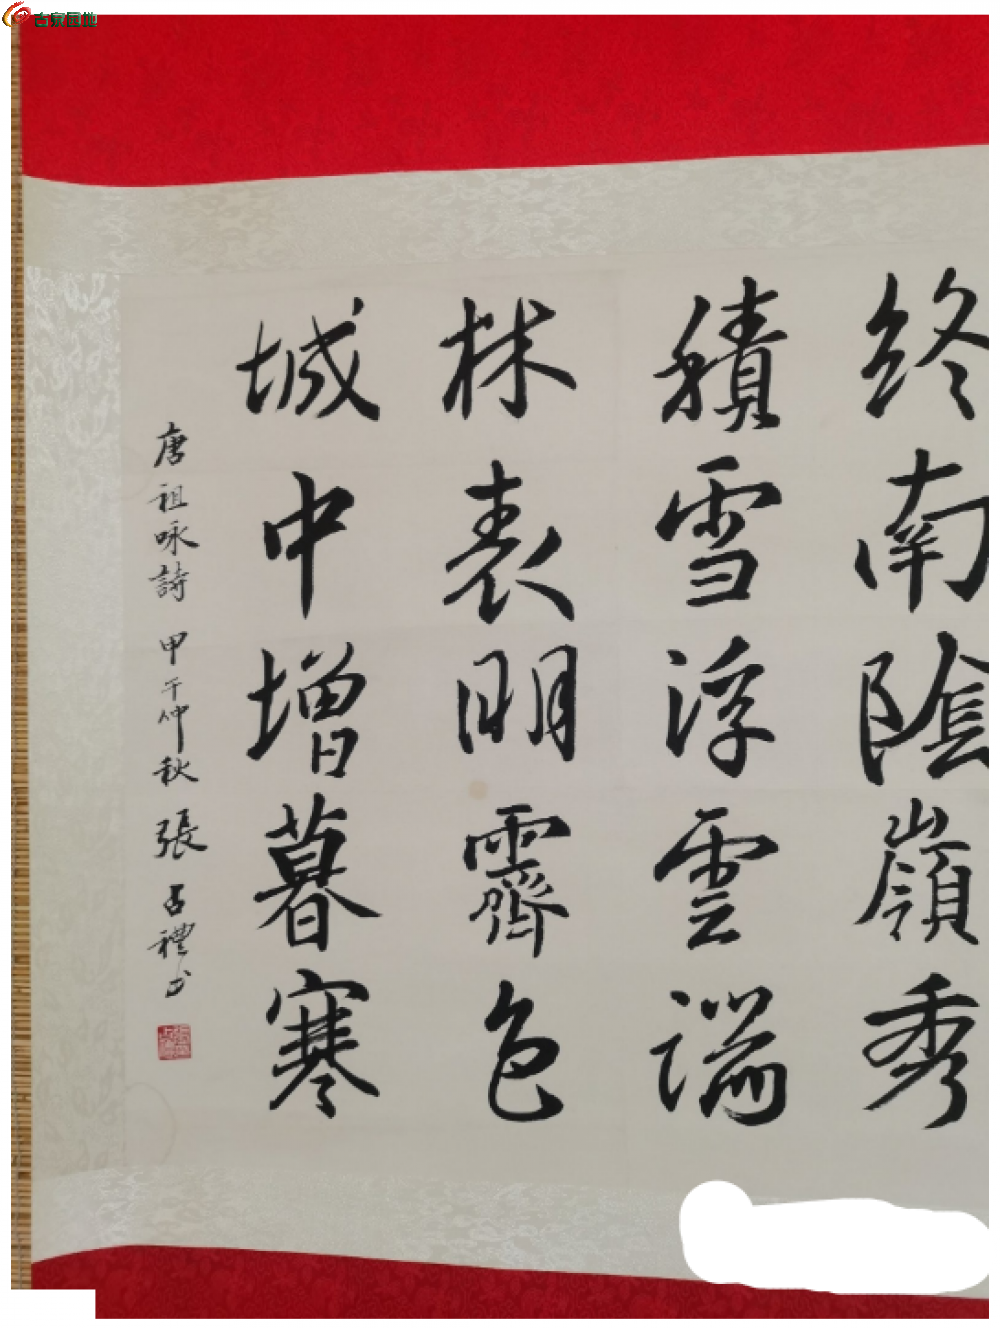 終南陰嶺秀
積雪浮雲端
林表明霽色
城中增暮寒
唐祖咏詩 甲午仲秋 張占禮书